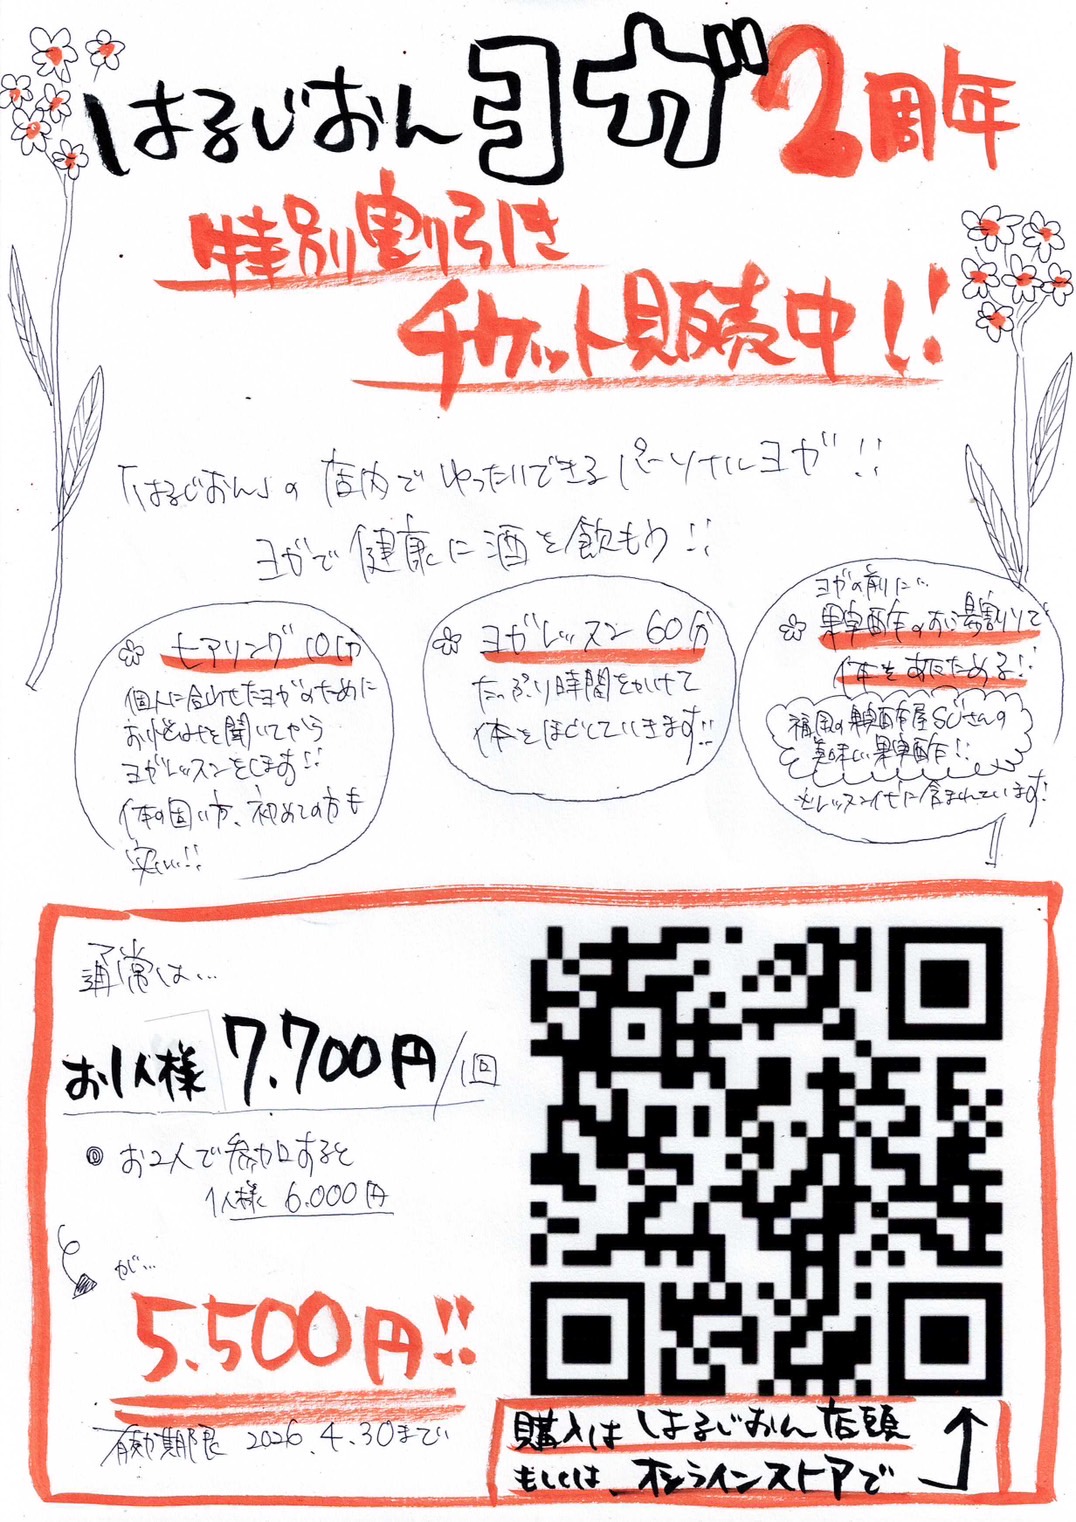 はるじおんヨガ2周年
特別割引き
チケット販売中!!
「はるじおん」の店内でゆったりできるパーソナルヨガ!!
ヨガで健康に酒を飲もう!!
ヒアリング10分
個人に合わせたヨガのために
お悩みを聞いてから
ヨガレッスンをします!!
体の固い方、初めての方も
安心!!
ヨガレッスン60分
たっぷり時間をかけて
体をほぐしていきます!!
ヨガの前に…
果実酢のお湯割りで
体をあたためる!!
福岡の果実酢屋SUさんの
美味しい果実酢!!
※レッスン代に含まれています!
通常は…
お1人様 7.700円/1回
◎ お2人で参加すると
1人様 6.000円
が…
5.500円!!
有効期限 2026.4.30まで
購入は はるじおん店頭
もしくは オンラインストアで